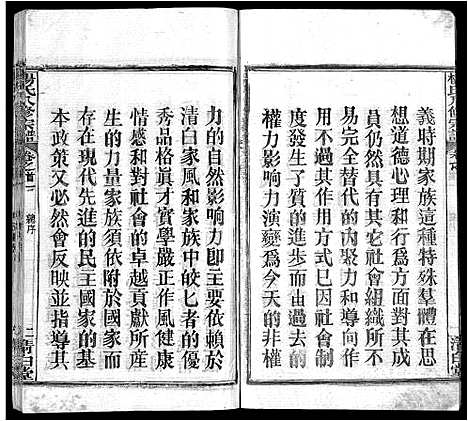 義時期家族這種特殊羣體在思
想道德心理和行爲方面對其成
員仍然具有其它社會組織所不
易完全替代的內聚力和導向作
用其作用方式已因社會制
度發生了質的進步而由過去的
權力影响力演變爲今天的非權
清白堂
楊氏八修宗譜
卷首
總序
二
清白堂
力的自然影响力即主要依賴於
清白家風和家族中皎七者的優
秀品格眞才實學嚴正作風健康
情感和對社會的卓越貢獻所產
生的力量家族須依附於國家而
存在現代先進的民主國家的基
本政策又必然會反映並指導其